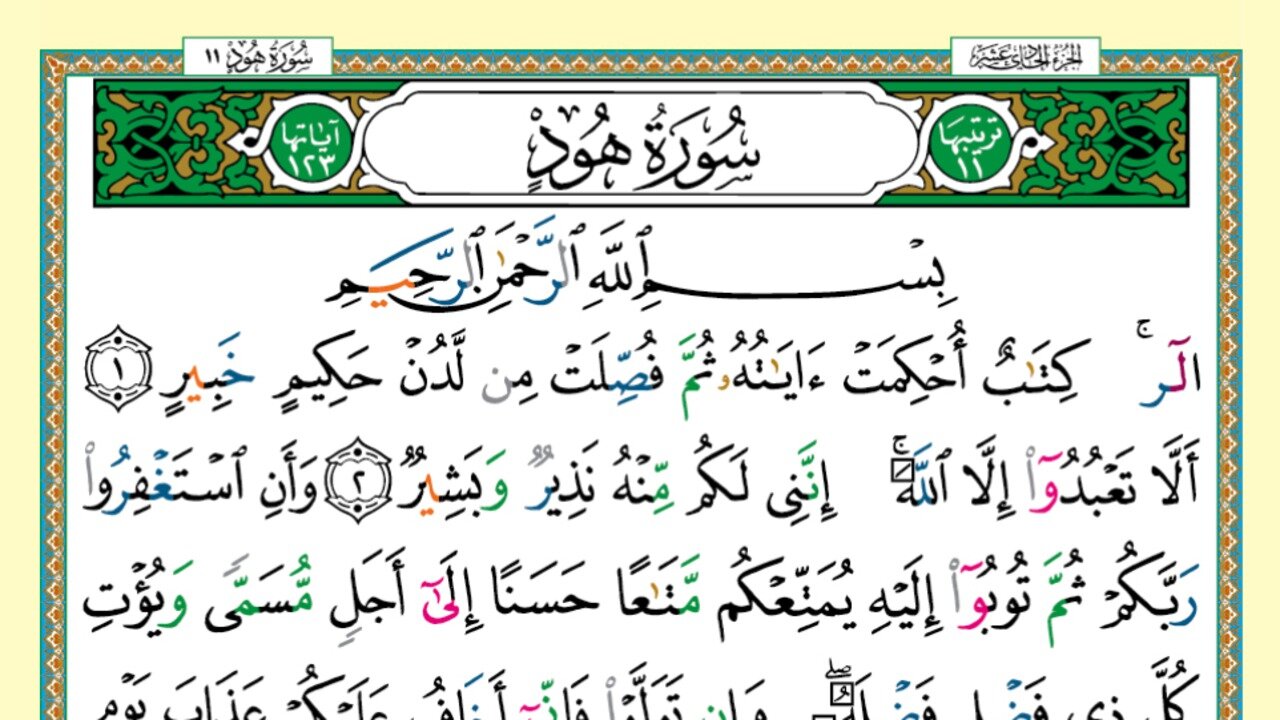 الجزء الحادي عشر
سُورَةُ هُودٍ ١١
ترتيبها
١١
سُورَةُ هُودٍ
آياتها
١٢٣
بِسْمِ ٱللَّهِ ٱلرَّحْمَٰنِ ٱلرَّحِيمِ
الٓرۚ كِتَٰبٌ أُحْكِمَتْ ءَايَٰتُهُۥ ثُمَّ فُصِّلَتْ مِن لَّدُنْ حَكِيمٍ خَبِيرٍ ١
أَلَّا تَعْبُدُوٓا۟ إِلَّا ٱللَّهَۚ إِنَّنِى لَكُم مِّنْهُ نَذِيرٌ وَبَشِيرٌ ٢ وَأَنِ ٱسْتَغْفِرُوا۟
رَبَّكُمْ ثُمَّ تُوبُوٓا۟ إِلَيْهِ يُمَتِّعْكُم مَّتَٰعًا حَسَنًا إِلَىٰٓ أَجَلٍ مُّسَمًّى وَيُؤْتِ
كُلَّ ذِى فَضْلٍ فَضْلَهُۥۖ وَإِن تَوَلَّوْا۟ فَإِنِّىٓ أَخَافُ عَلَيْكُمْ عَذَابَ يَوْمٍ